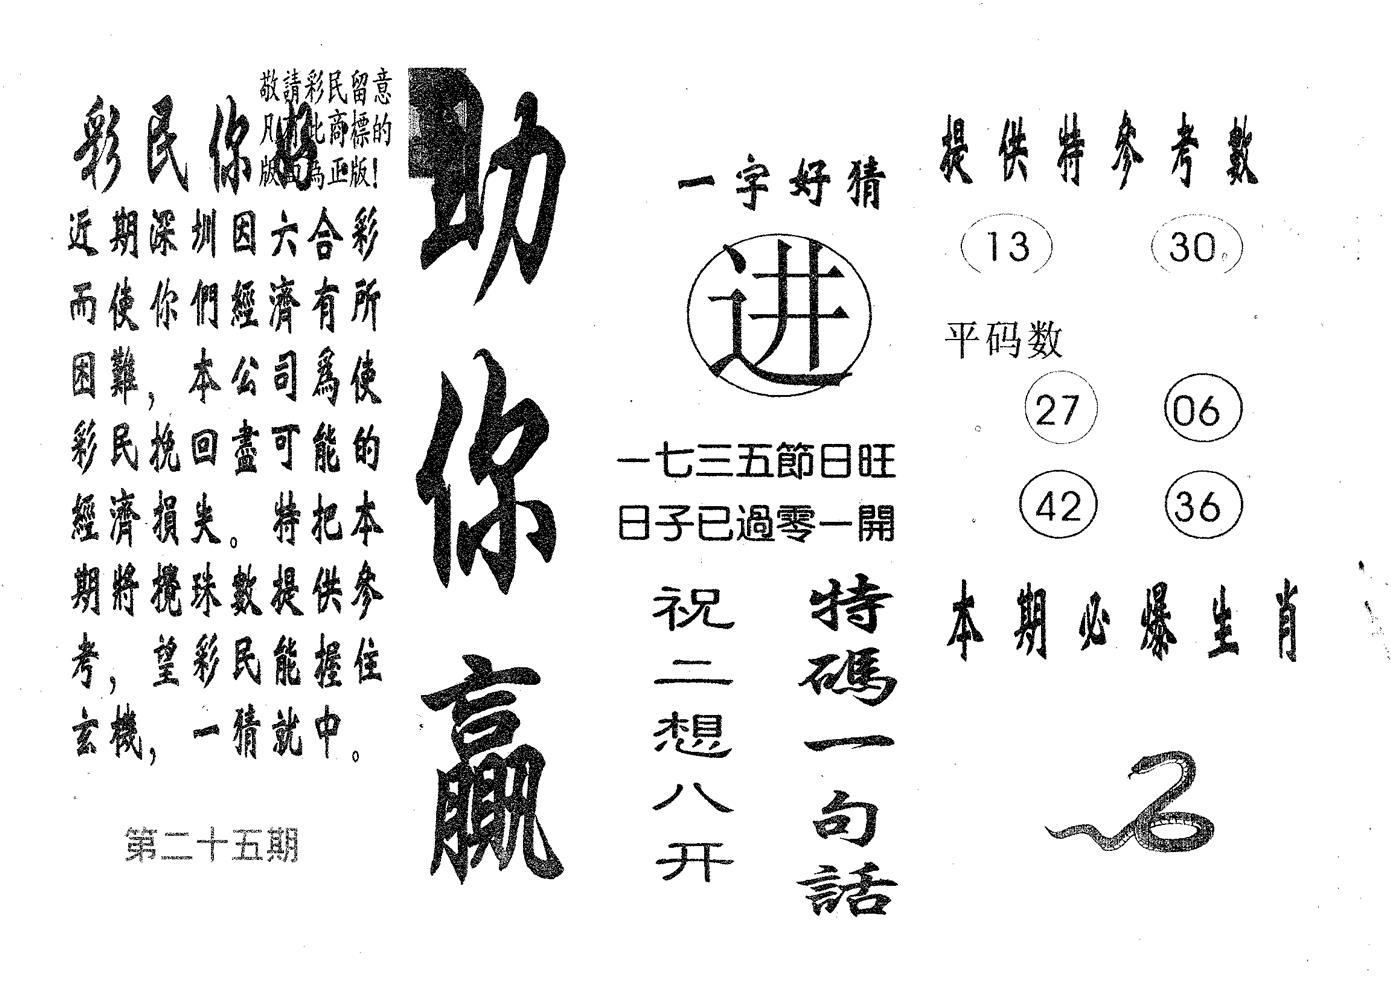 敬請彩民留意
凡有此商標的
版面為正版！
彩民你好
近期深圳因六合彩
而使你們經濟有所
困難，本公司爲使
彩民挽回盡可能的
經濟損失。特把本
期將攪珠數提供參
考，望彩民能握住
玄機，一猜就中。
第二十五期
助你贏
一字好猜
进
一七三五節日旺
日子已過零一開
特碼一句話
祝二想八开
提供特參考數
13 30
平码数
27 06
42 36
本期必爆生肖